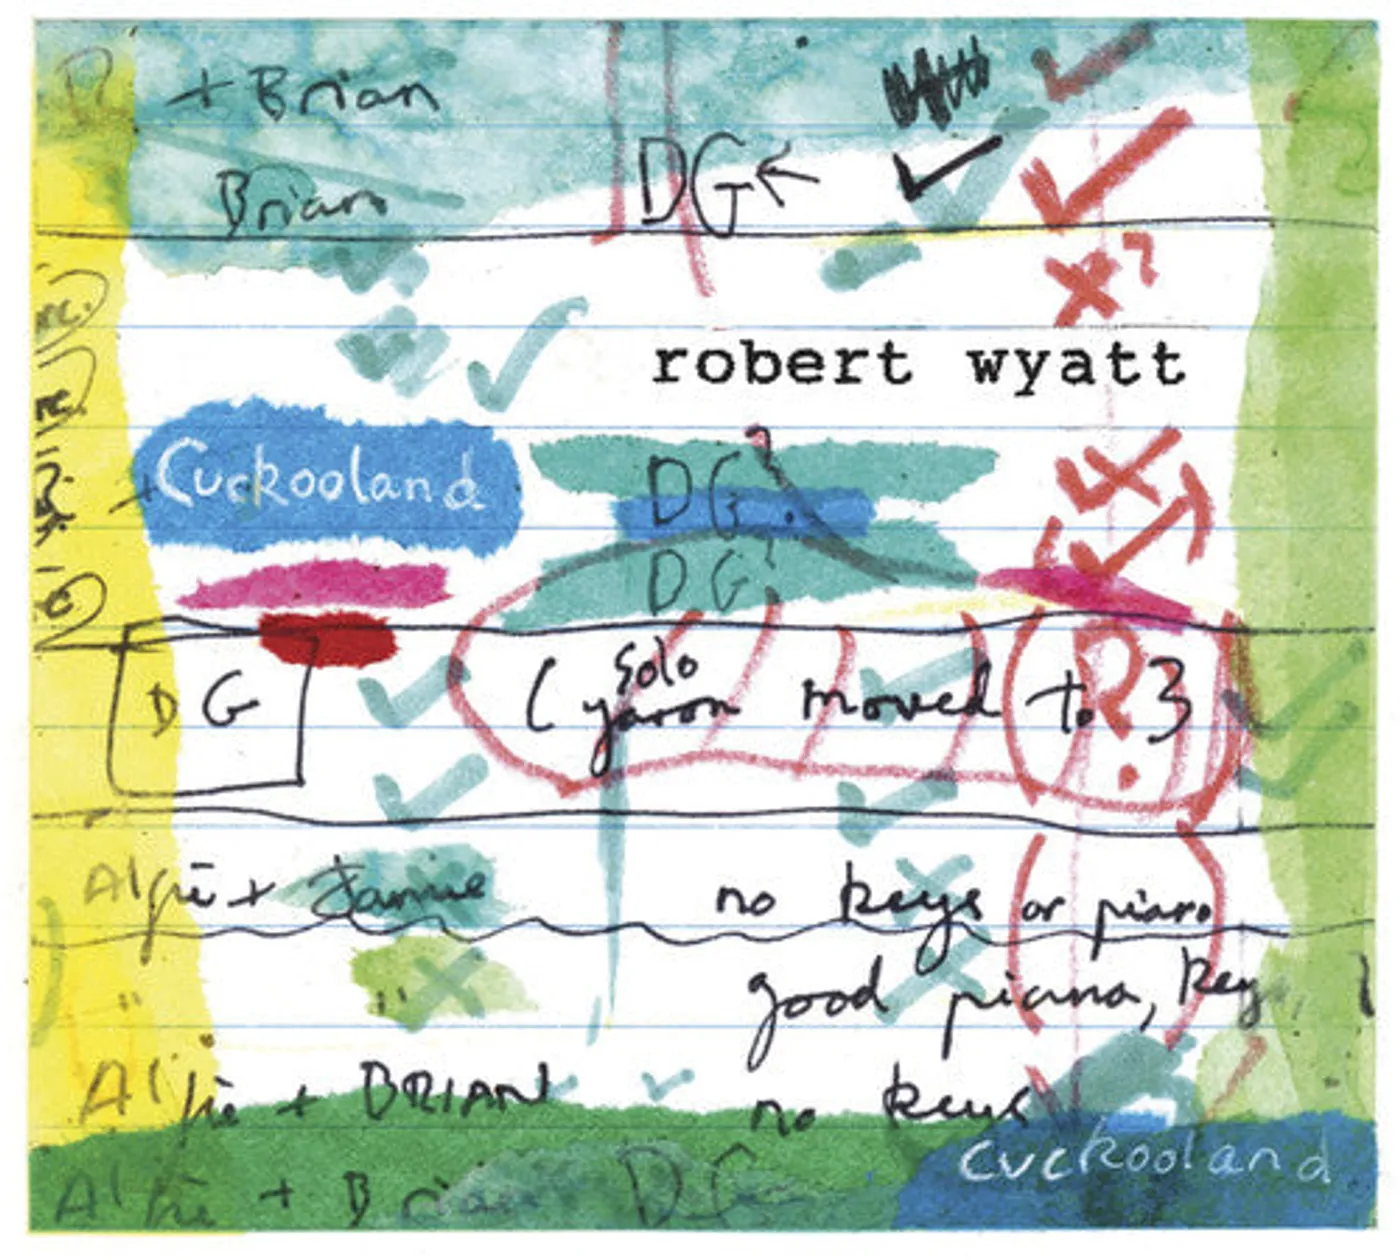 + Brian
Brian DG ←
robert wyatt
Cuckooland
DG?
DG?
DG (solo yaron moved to ? }
Alfie + Jamie no keys or piano
" " good piano, key
Alfie + BRIAN no keys
cuckooland
Alfie + Brian DG